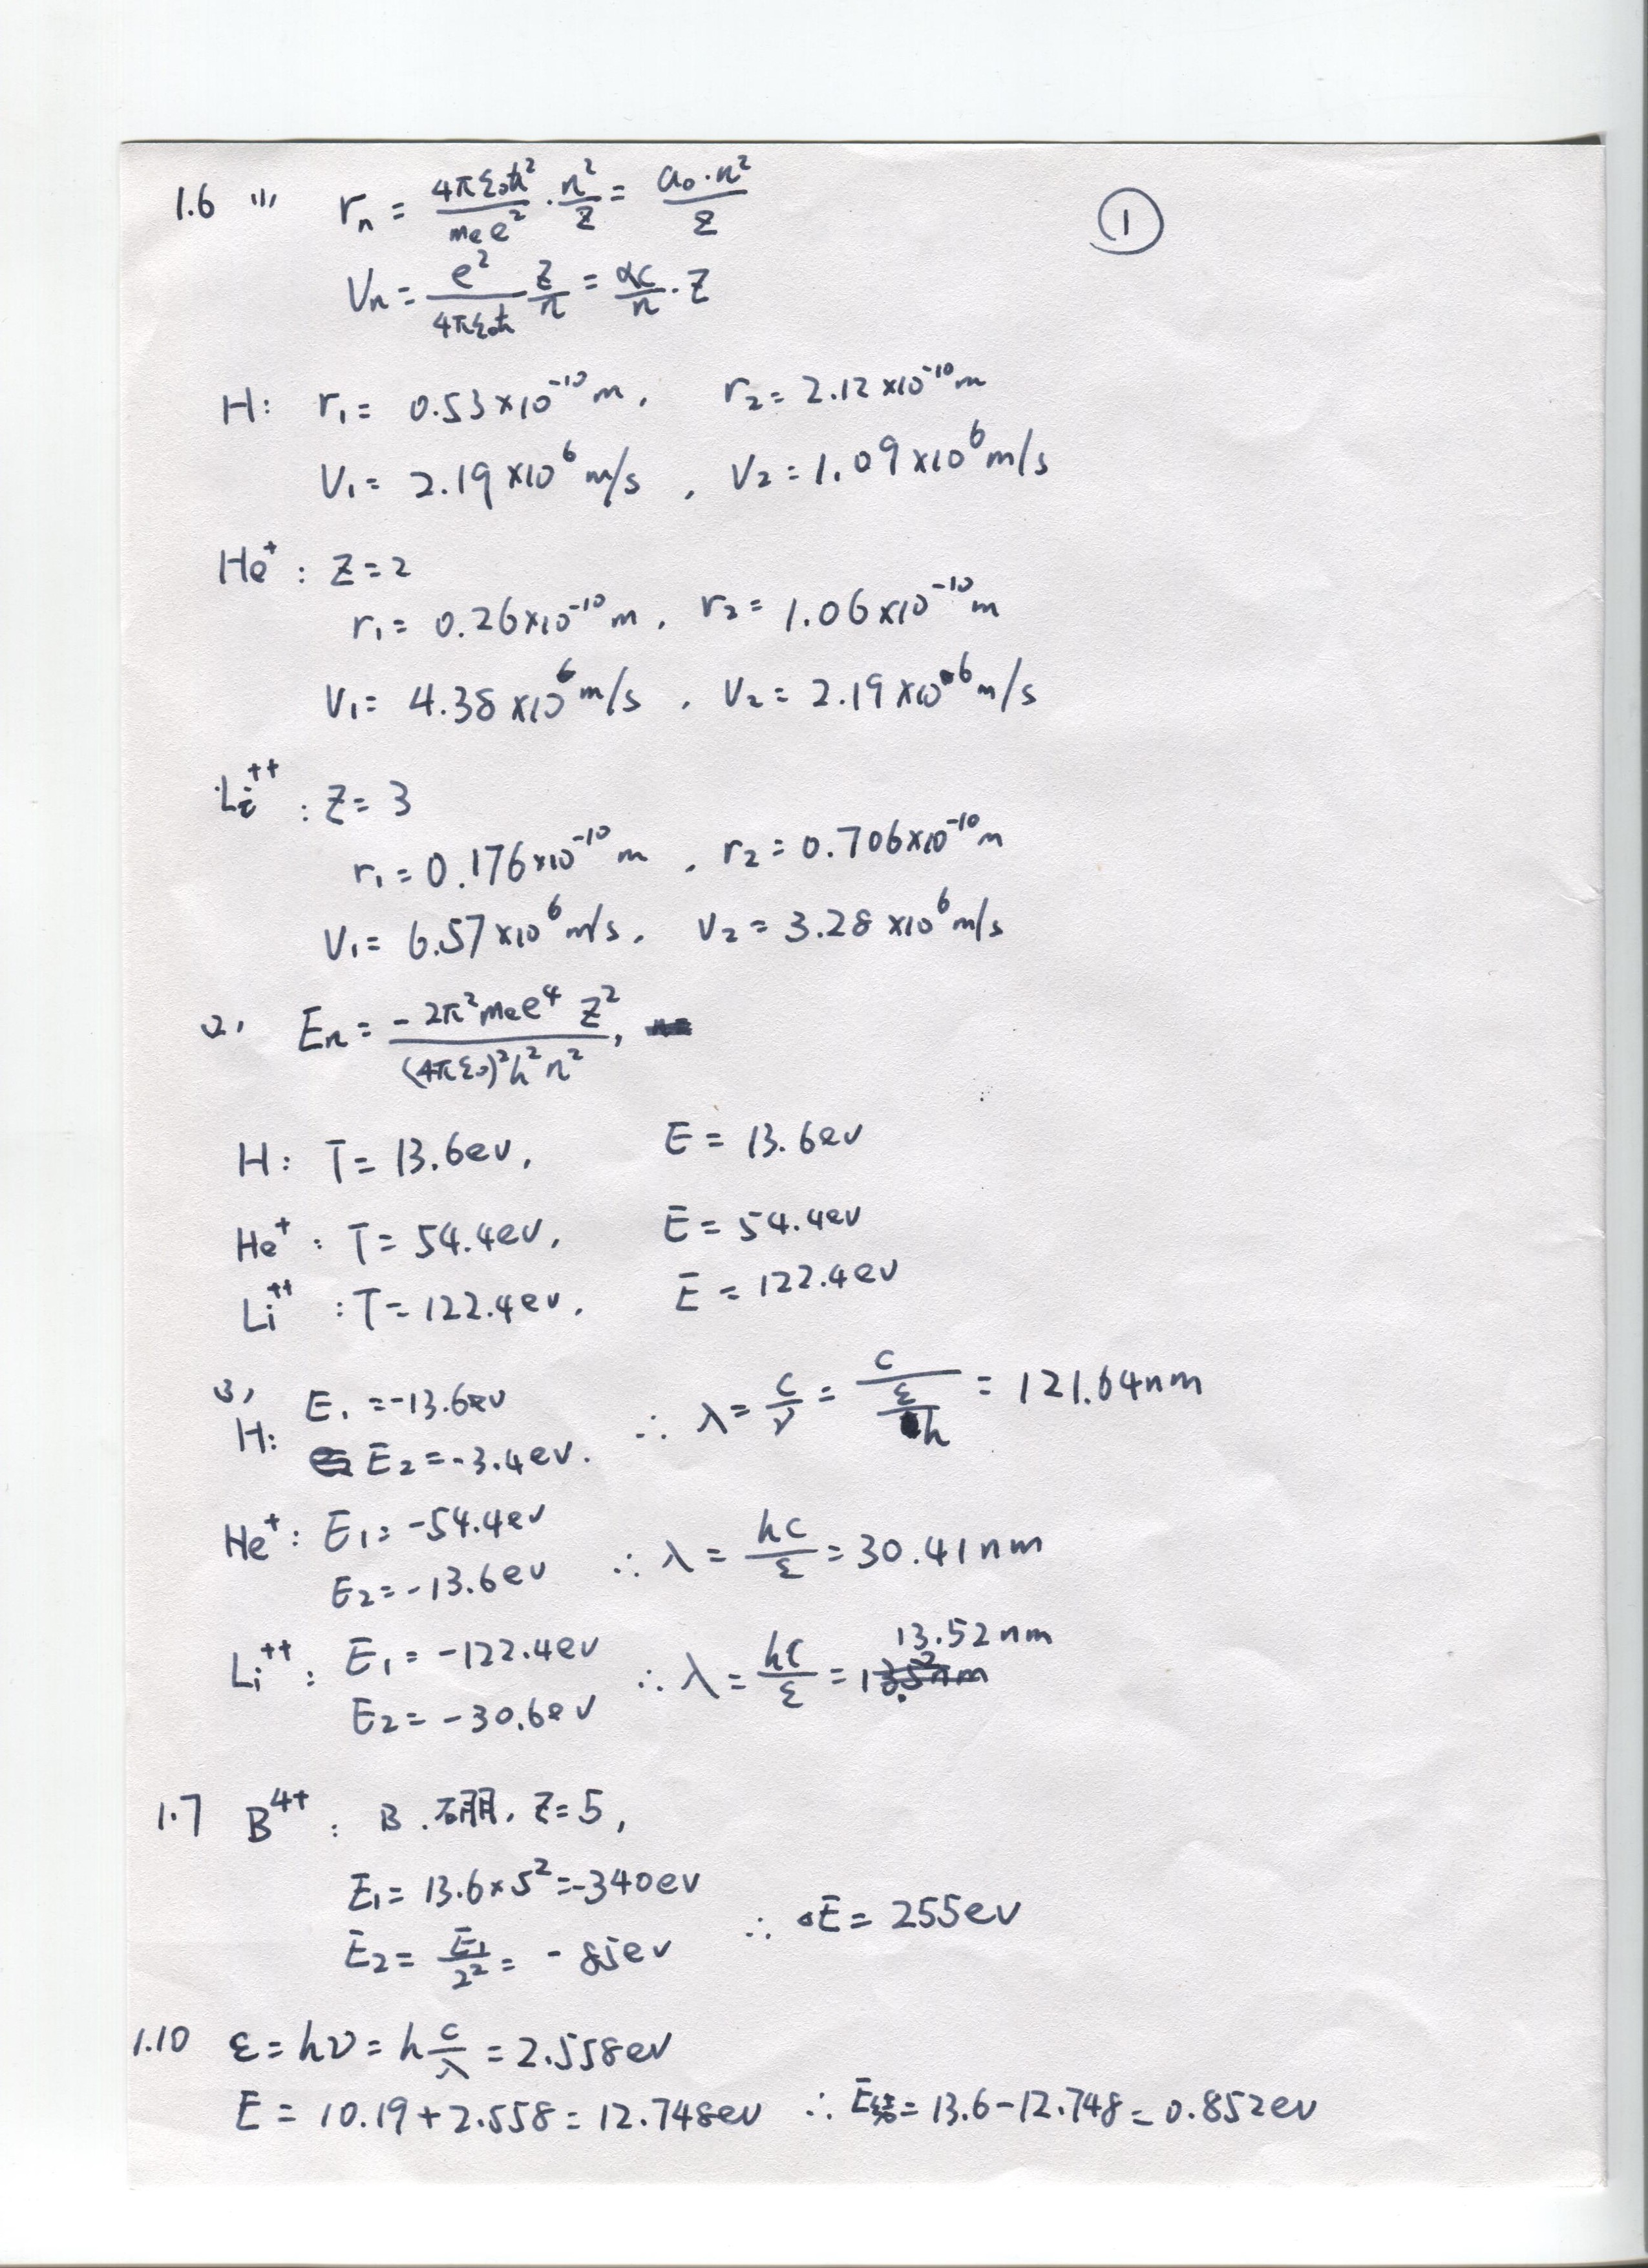 1.6 (1) rₙ = 4πε₀ħ²/mₑe² · n²/Z = a₀·n²/Z
①
Vₙ = e²/4πε₀ħ Z/n = αc/n · Z
H: r₁ = 0.53×10⁻¹⁰m, r₂ = 2.12×10⁻¹⁰m
V₁ = 2.19×10⁶m/s, V₂ = 1.09×10⁶m/s
He⁺: Z=2
r₁ = 0.26×10⁻¹⁰m, r₂ = 1.06×10⁻¹⁰m
V₁ = 4.38×10⁶m/s, V₂ = 2.19×10⁶m/s
Li⁺⁺: Z=3
r₁ = 0.176×10⁻¹⁰m, r₂ = 0.706×10⁻¹⁰m
V₁ = 6.57×10⁶m/s, V₂ = 3.28×10⁶m/s
(2) Eₙ = -2π²mₑe⁴Z²/(4πε₀)²h²n²,
H: T=13.6ev, E=13.6ev
He⁺: T=54.4ev, E=54.4ev
Li⁺⁺: T=122.4ev, E=122.4ev
(3)
H: E₁=-13.6ev
E₂=-3.4ev. ∴ λ = c/ν = c/(ε/h) = 121.64nm
He⁺: E₁=-54.4ev
E₂=-13.6ev ∴ λ = hc/ε = 30.41nm
Li⁺⁺: E₁=-122.4ev
E₂=-30.6ev ∴ λ = hc/ε = 13.52nm
1.7 B⁴⁺: B.硼, Z=5,
E₁=13.6×5²=-340ev
E₂=E₁/2²=-85ev ∴ ΔE=255ev
1.10 ε=hν=h c/λ=2.558ev
E=10.19+2.558=12.748ev ∴ E结=13.6-12.748=0.852ev